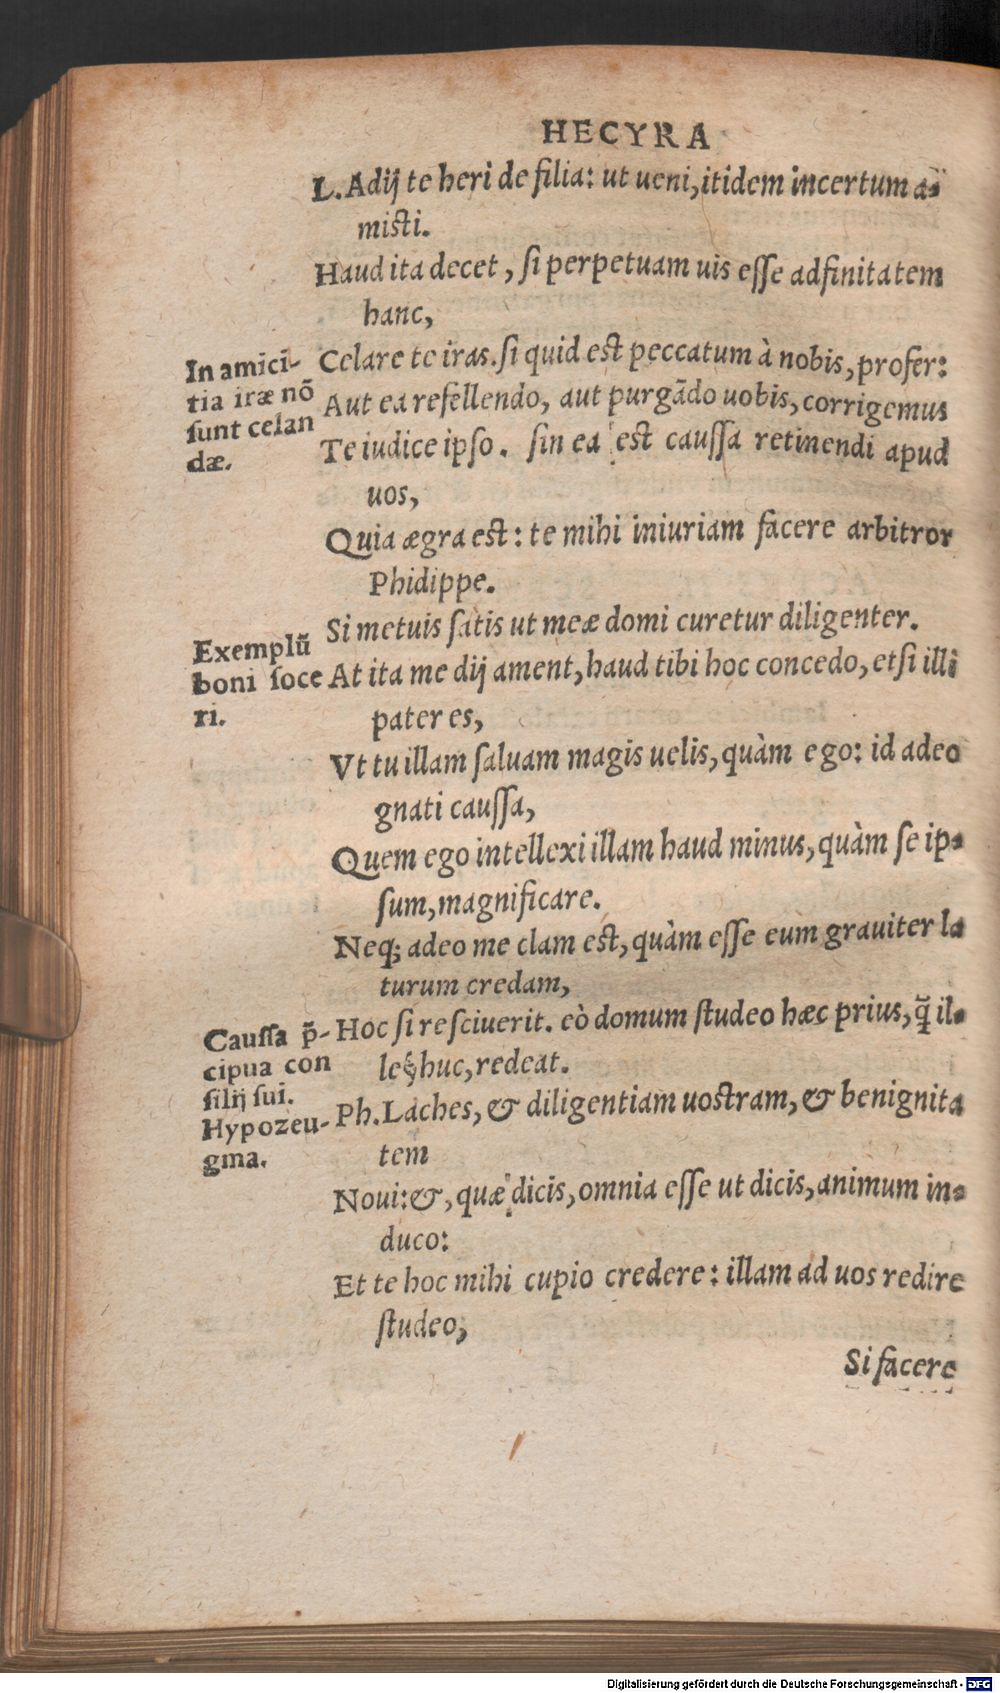 HECYRA
L. Adij te heri de filia: ut ueni, itidem incertum a-
misti.
Haud ita decet, si perpetuam uis esse adfinitatem
hanc,
In amici-
tia iræ nõ
sunt celan
dæ.
Celare te iras. si quid est peccatum à nobis, profer:
Aut ea refellendo, aut purgãdo uobis, corrigemus
Te iudice ipso. sin ea est caussa retinendi apud
uos,
Quia ægra est: te mihi iniuriam facere arbitror
Phidippe.
Exemplũ
boni soce
ri.
Si metuis satis ut meæ domi curetur diligenter.
At ita me dij ament, haud tibi hoc concedo, etsi illi
pater es,
Vt tu illam saluam magis uelis, quàm ego: id adeo
gnati caussa,
Quem ego intellexi illam haud minus, quàm se ip-
sum, magnificare.
Neq; adeo me clam est, quàm esse eum grauiter la
turum credam,
Caussa p̃-
cipua con
silij sui.
Hypozeu-
gma.
Hoc si resciuerit. eò domum studeo hæc prius, q̃ il-
le huc, redeat.
Ph. Laches, & diligentiam uostram, & benignita
tem
Noui: &, quæ dicis, omnia esse ut dicis, animum in-
duco:
Et te hoc mihi cupio credere: illam ad uos redire
studeo,
Si facere
Digitalisierung gefördert durch die Deutsche Forschungsgemeinschaft - DFG